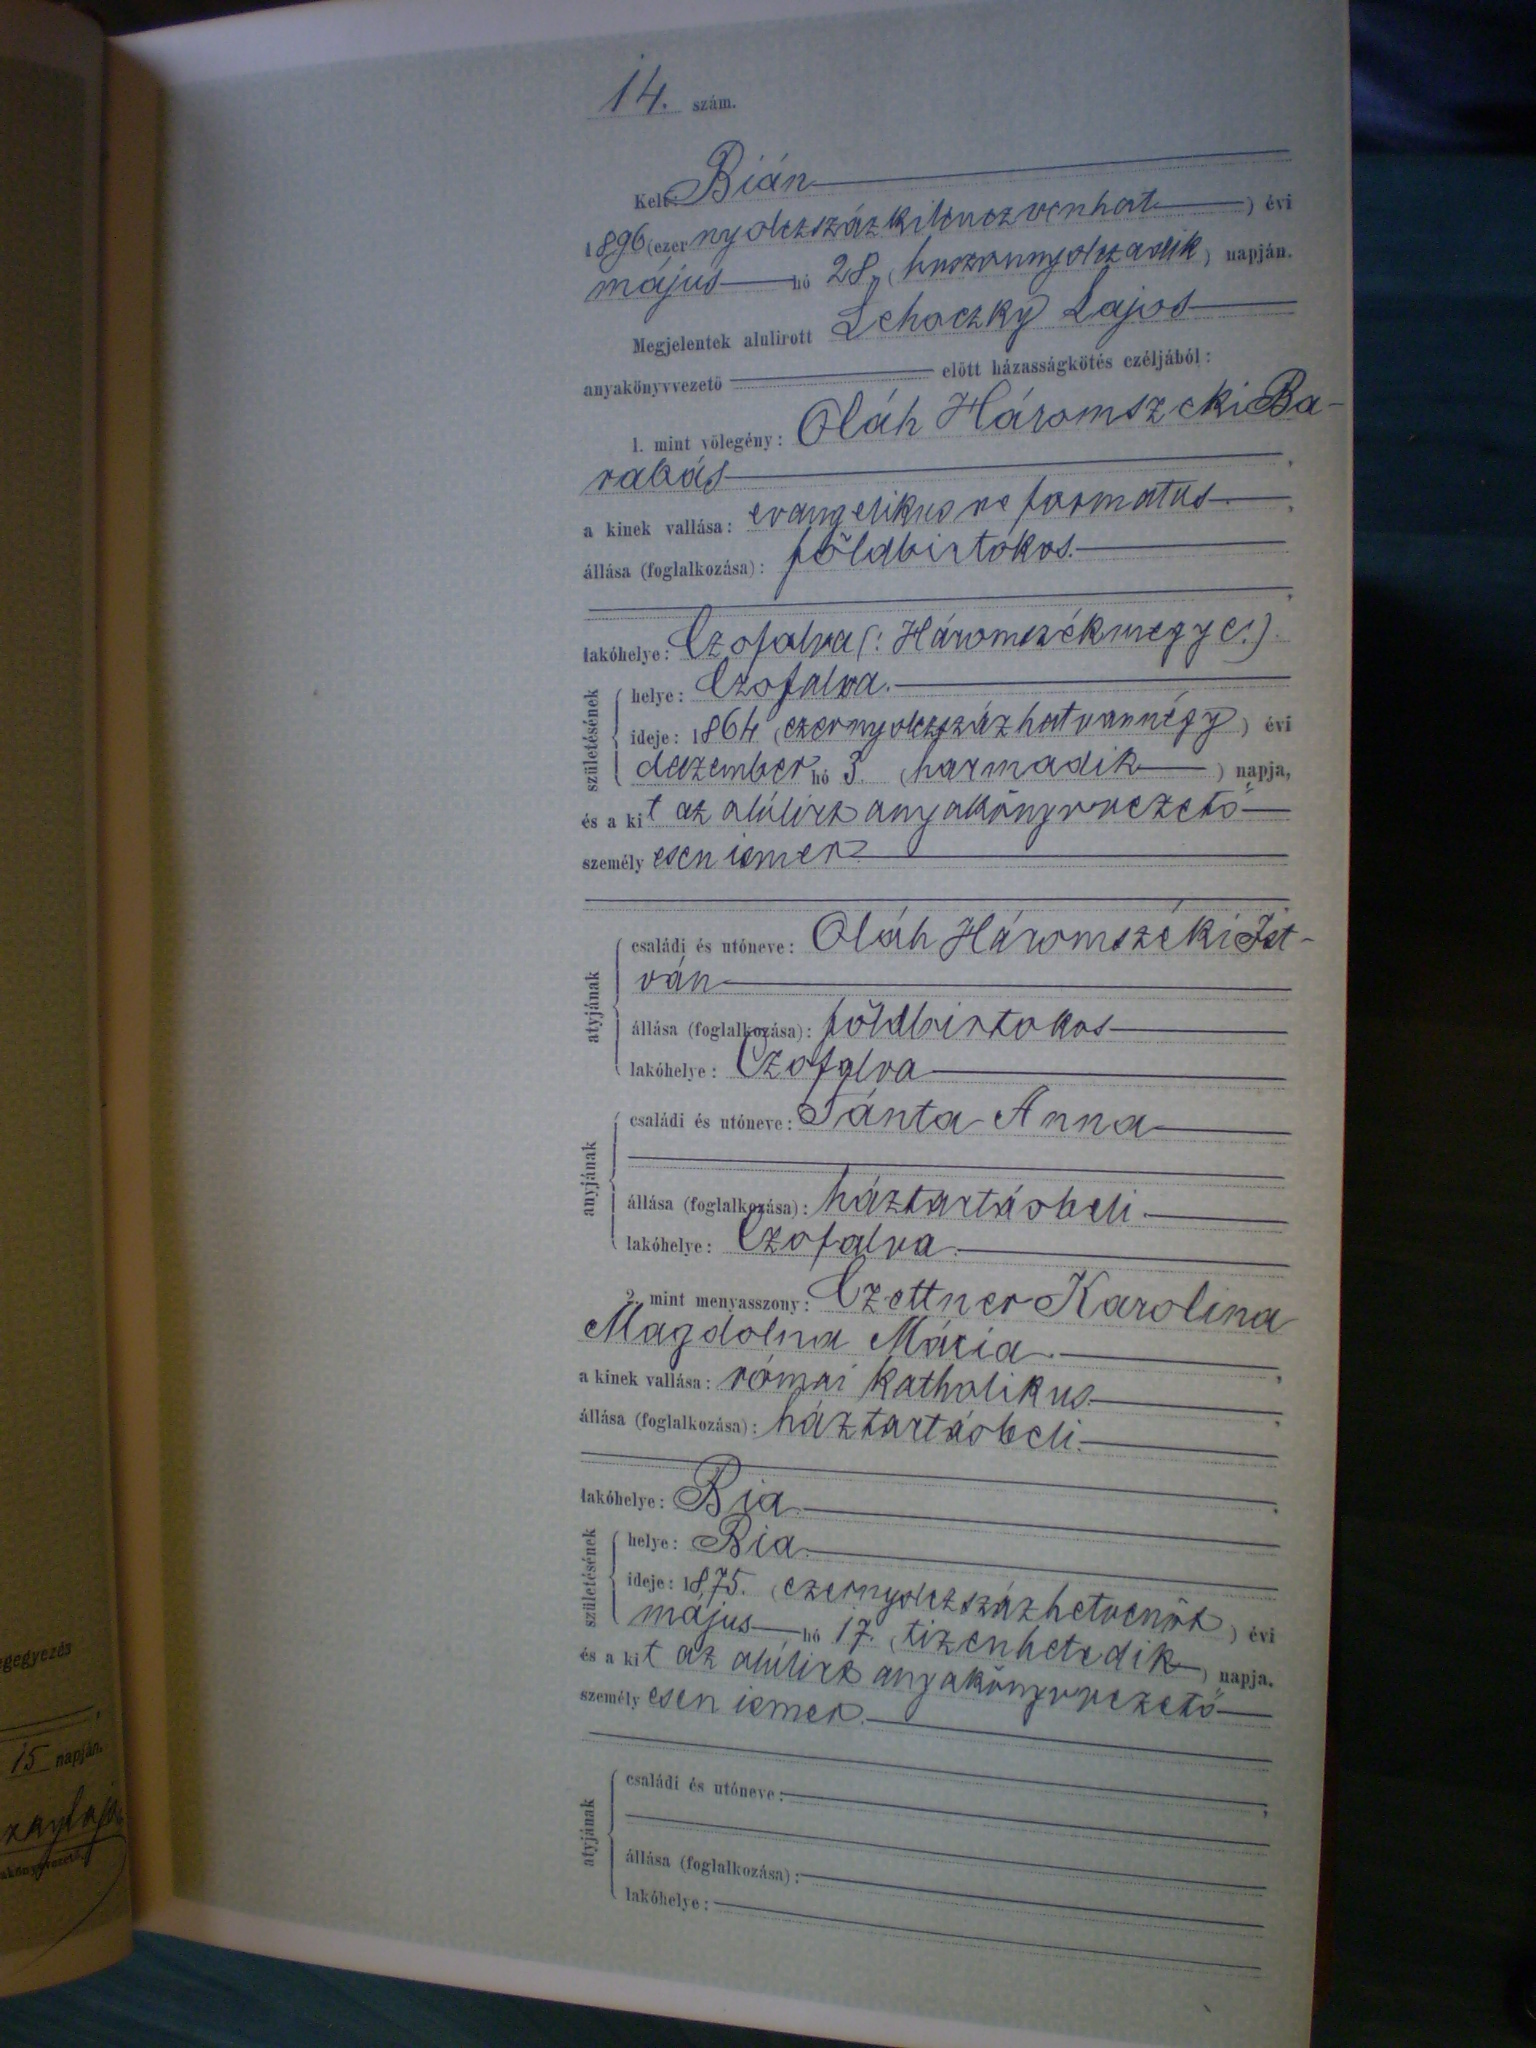 14. szám.
Kelt: Bián
1896 (ezer nyolczszázkilenczvenhat) évi
május hó 28. (huszonnyolczadik) napján.
Megjelentek alulirott Lehoczky Lajos
anyakönyvvezető előtt házasságkötés czéljából:
1. mint vőlegény: Oláh Háromszeki Ba-
rabás,
a kinek vallása: evangelikus reformatus,
állása (foglalkozása): földbirtokos.
,
lakóhelye: Czofalva (: Háromszékmegye:)
születésének
helye: Czofalva.
ideje: 1864 (ezernyolczszázhatvannégy) évi
deczember hó 3. (harmadik) napja,
és a kit az alúlirt anyakönyvvezető
személyesen ismer.
atyjának
családi és utóneve: Oláh Háromszéki Ist-
ván
állása (foglalkozása): földbirtokos
lakóhelye: Czofalva
anyjának
családi és utóneve: Tánta Anna
állása (foglalkozása): háztartásbeli.
lakóhelye: Czofalva.
2. mint menyasszony: Czettner Karolina
Magdolna Mária.,
a kinek vallása: római katholikus.,
állása (foglalkozása): háztartásbeli.
lakóhelye: Bia.
születésének
helye: Bia.
ideje: 1875. (ezernyolczszázhetvenöt) évi
május hó 17. (tizenhetedik) napja,
és a kit az alúlirt anyakönyvvezető
személyesen ismer.
atyjának
családi és utóneve:,
állása (foglalkozása):
lakóhelye:
egyezés
15 napján.